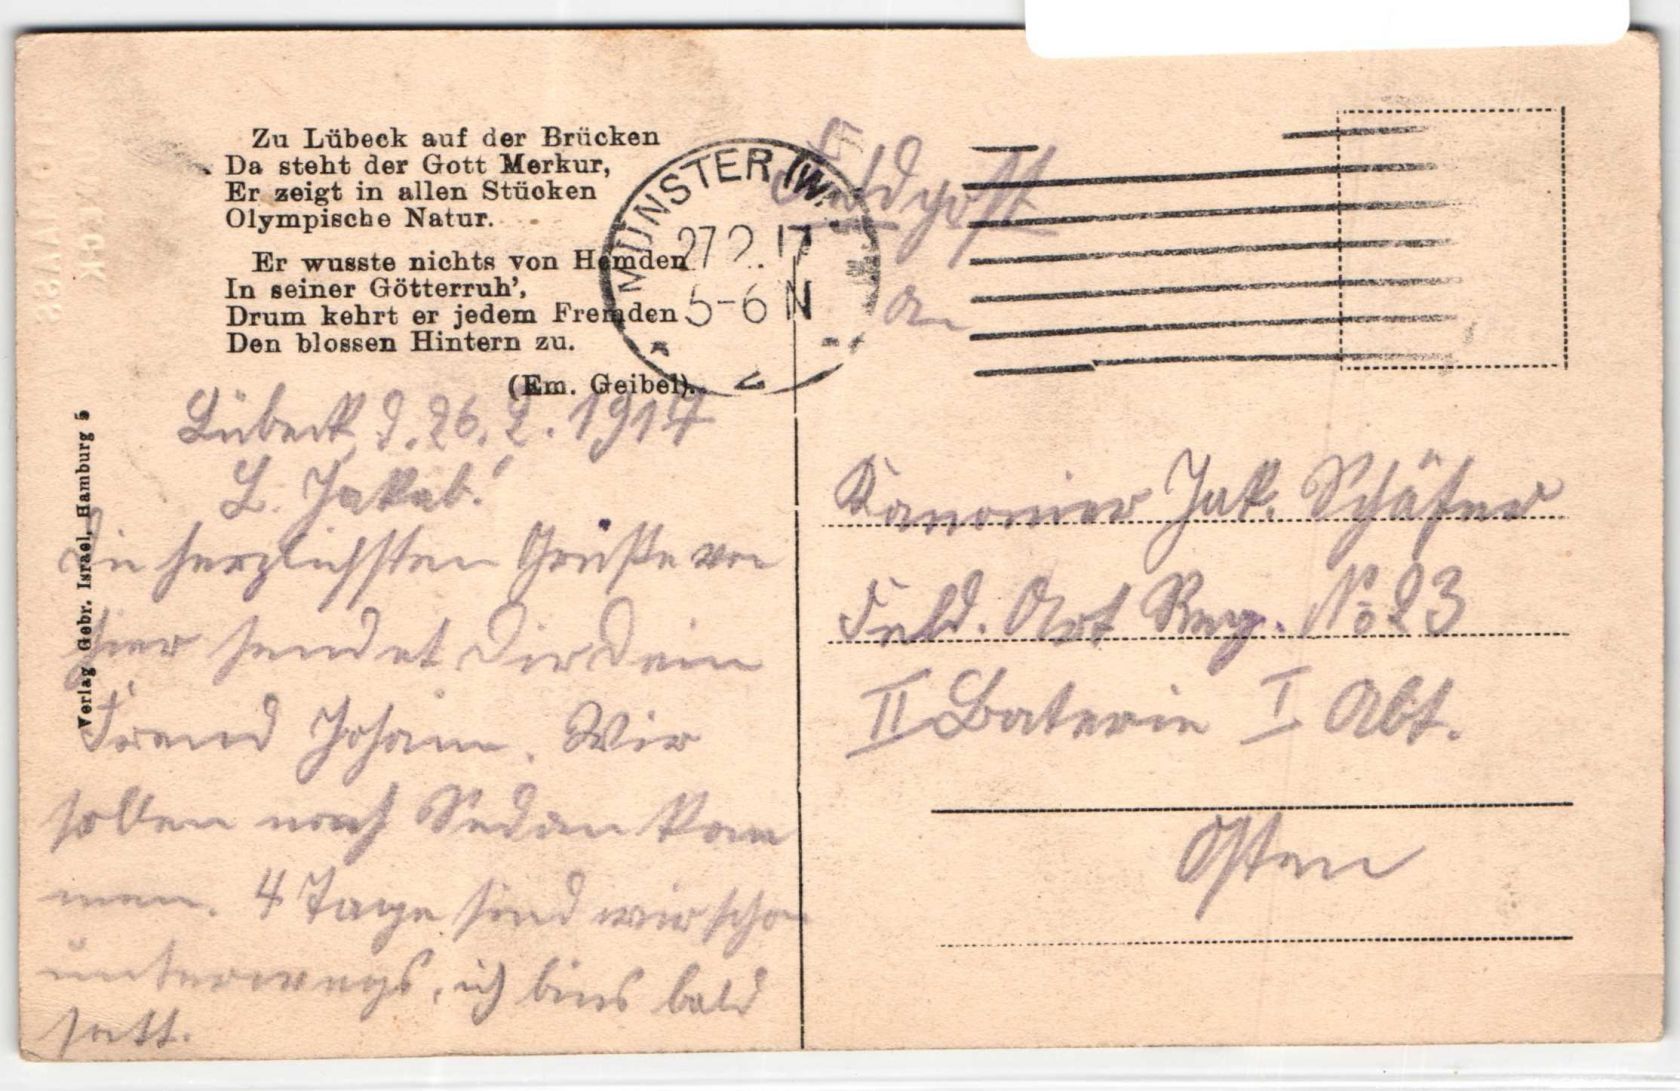 Zu Lübeck auf der Brücken
Da steht der Gott Merkur,
Er zeigt in allen Stücken
Olympische Natur.
Er wusste nichts von Hemden
In seiner Götterruh',
Drum kehrt er jedem Fremden
Den blossen Hintern zu.
(Em. Geibel).
Verlag Gebr. Israel, Hamburg 5
MÜNSTER (W.
27 2. 17
5-6 N
Feldpost
an
Lübeck, d. 26. 2. 1917
L. Jakob!
Die herzlichsten Grüße von
hier sendet Dir Dein
Freund Johann. Wir
sollen nach Sedan kom
men. 4 Tage sind wir schon
unterwegs, ich bins bald
satt.
Kanonier Jak. Schäfer
Feld. Art Reg. No 23
II Baterie I Abt.
Osten